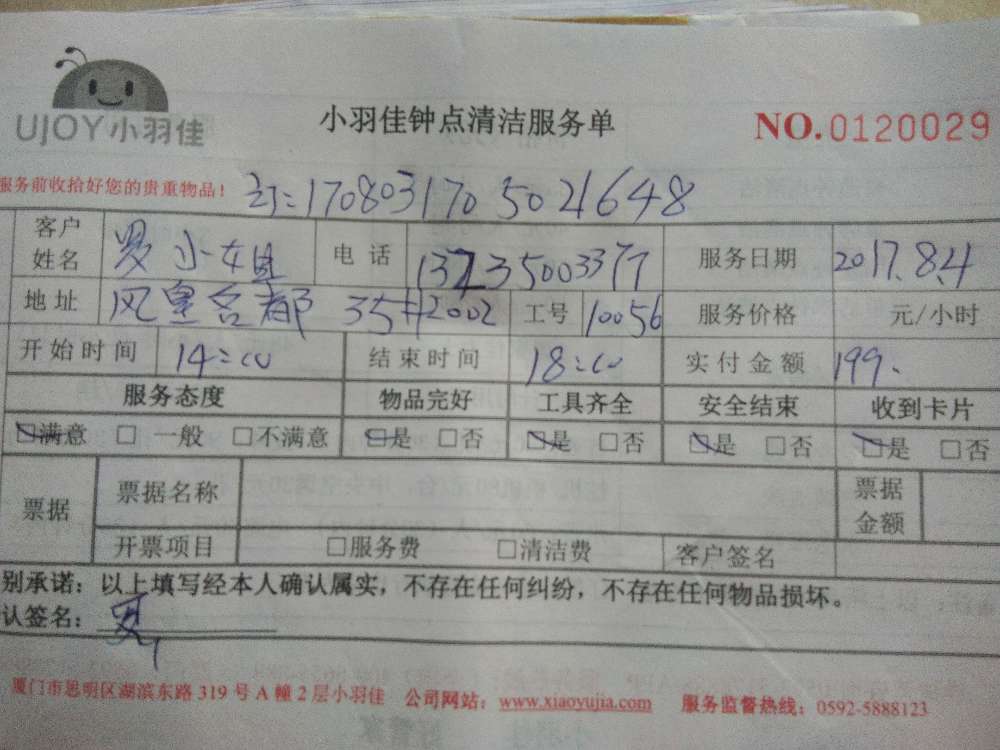 UJOY小羽佳
小羽佳钟点清洁服务单
NO.0120029
服务前收拾好您的贵重物品!
17080317050 21648
客户姓名 罗小姐 电话 13235003377 服务日期 2017.8.4
地址 凤凰名都 35#2002 工号 10056 服务价格 元/小时
开始时间 14:00 结束时间 18:00 实付金额 199.
服务态度 物品完好 工具齐全 安全结束 收到卡片
☑满意 □一般 □不满意 ☑是 □否 ☑是 □否 ☑是 □否 ☑是 □否
票据 票据名称 票据金额
开票项目 □服务费 □清洁费 客户签名
别承诺:以上填写经本人确认属实,不存在任何纠纷,不存在任何物品损坏。
认签名:罗
厦门市思明区湖滨东路319号A幢2层小羽佳 公司网站:www.xiaoyujia.com 服务监督热线:0592-5888123